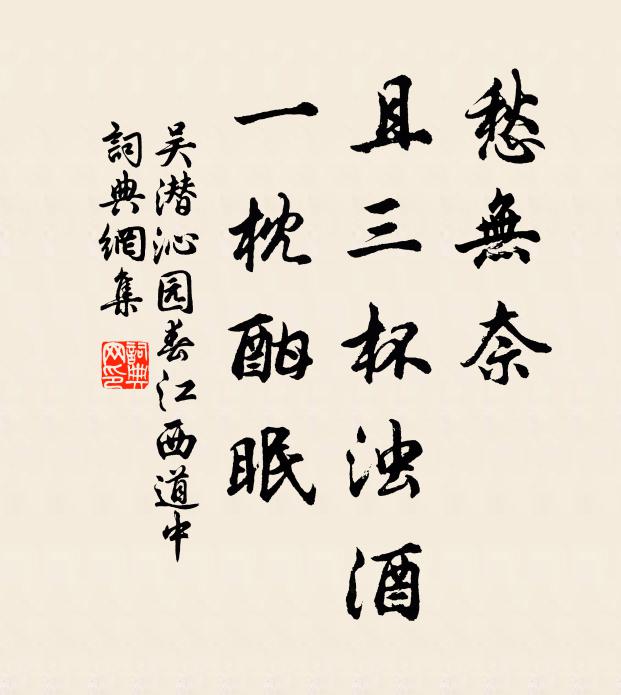 愁無奈
且三杯浊酒
一枕酣眠
吴潜沁园春江西道中
詞典網集
詞典網印